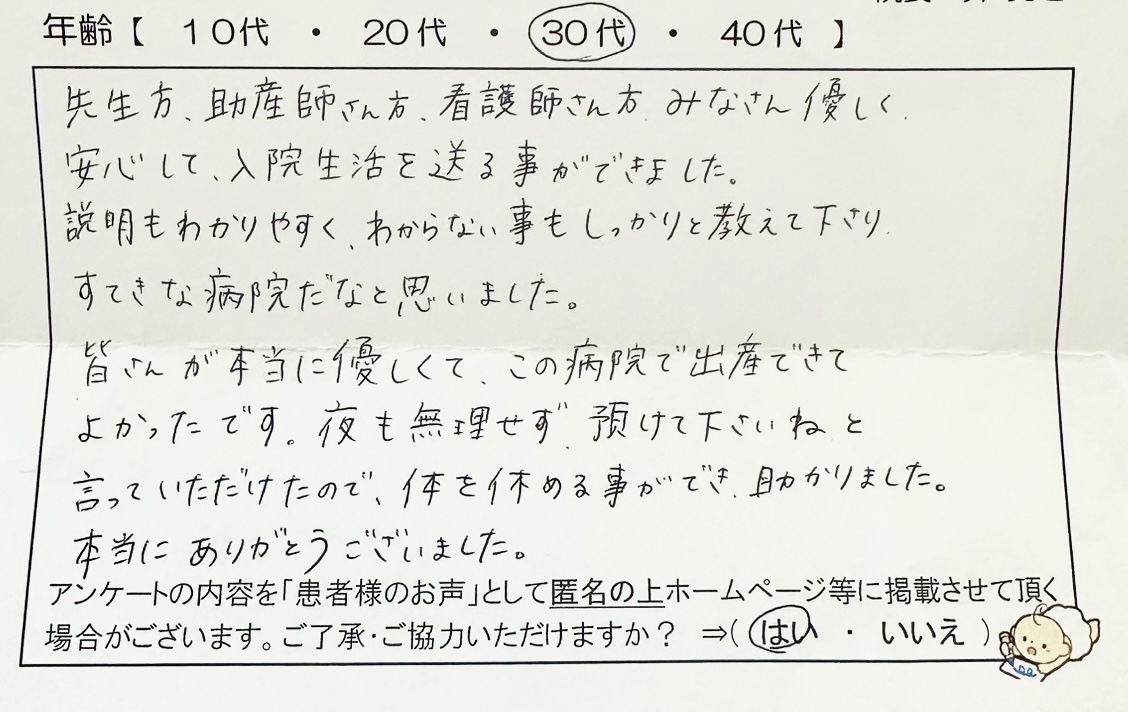 年齢【 10代 ・ 20代 ・ 30代 ・ 40代 】
先生方、助産師さん方、看護師さん方、みなさん優しく、
安心して、入院生活を送る事ができました。
説明もわかりやすく、わからない事もしっかりと教えて下さり、
すてきな病院だなと思いました。
皆さんが本当に優しくて、この病院で出産できて
よかったです。夜も無理せず、預けて下さいねと
言っていただけたので、体を休める事ができ、助かりました。
本当にありがとうございました。
アンケートの内容を「患者様のお声」として匿名の上ホームページ等に掲載させて頂く
場合がございます。ご了承・ご協力いただけますか? ⇒( はい ・ いいえ )